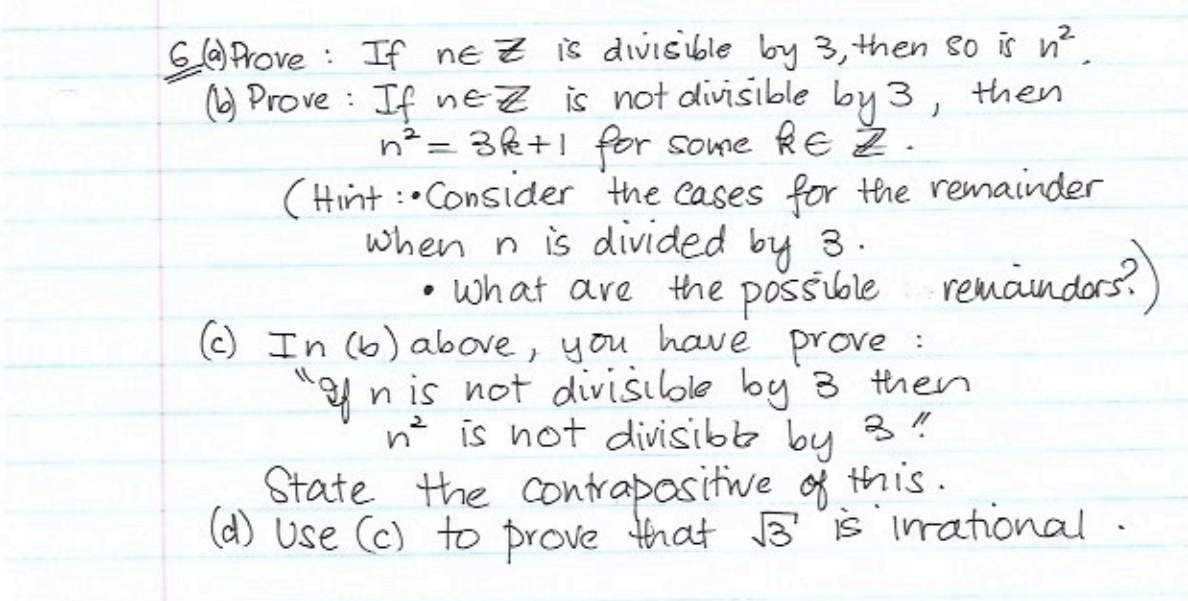 6.(a) Prove : If n∈ ℤ is divisible by 3, then so is n².
(b) Prove : If n∈ℤ is not divisible by 3, then
n² = 3k+1 for some k∈ ℤ.
(Hint :• Consider the cases for the remainder
when n is divided by 3.
• What are the possible remaindars?)
(c) In (b) above, you have prove :
"If n is not divisible by 3 then
n² is not divisible by 3"
State the contrapositive of this.
(d) Use (c) to prove that √3 is irrational.